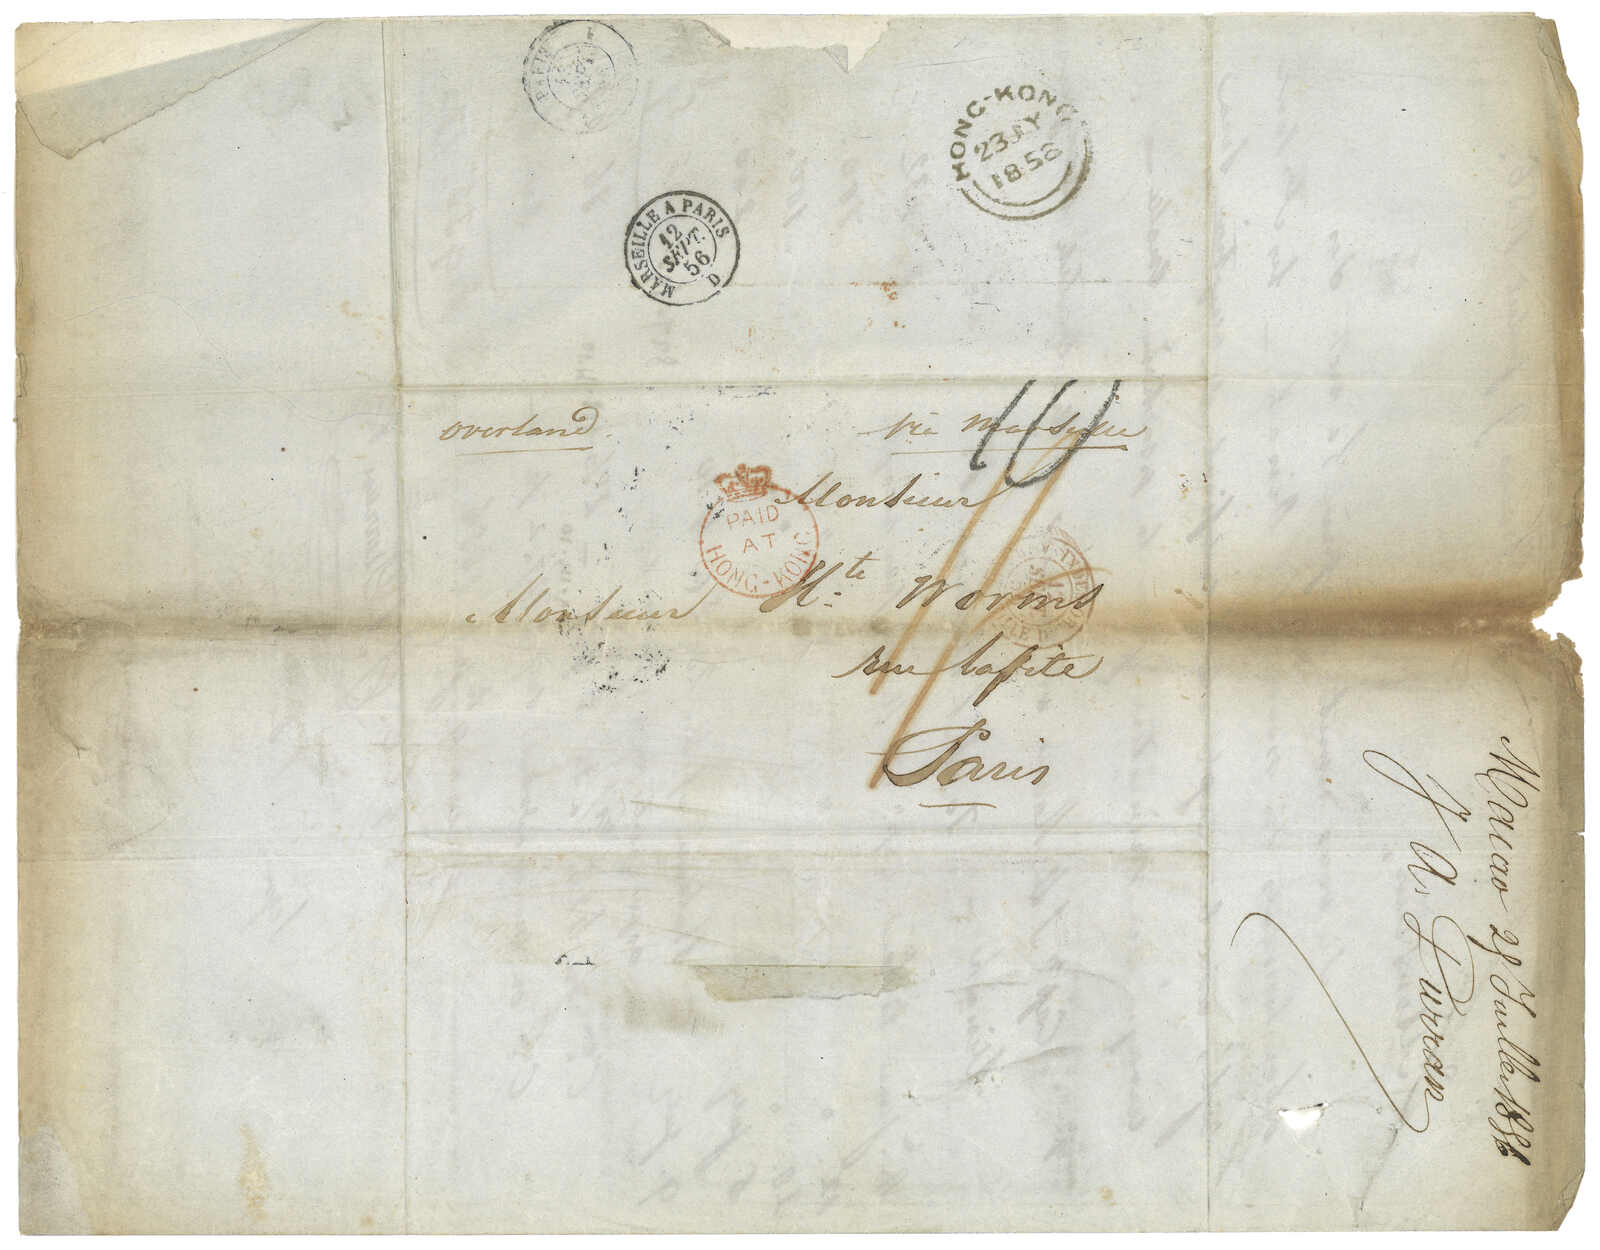 HONG-KONG
23 JY
1856
MARSEILLE A PARIS
12
SEPT.
56
D
overland
via Marseille
10
PAID
AT
HONG-KONG
Monsieur
Monsieur Hte. Worms
rue Laffite
Paris
Macao 28 Juillet 1856
J A Durran